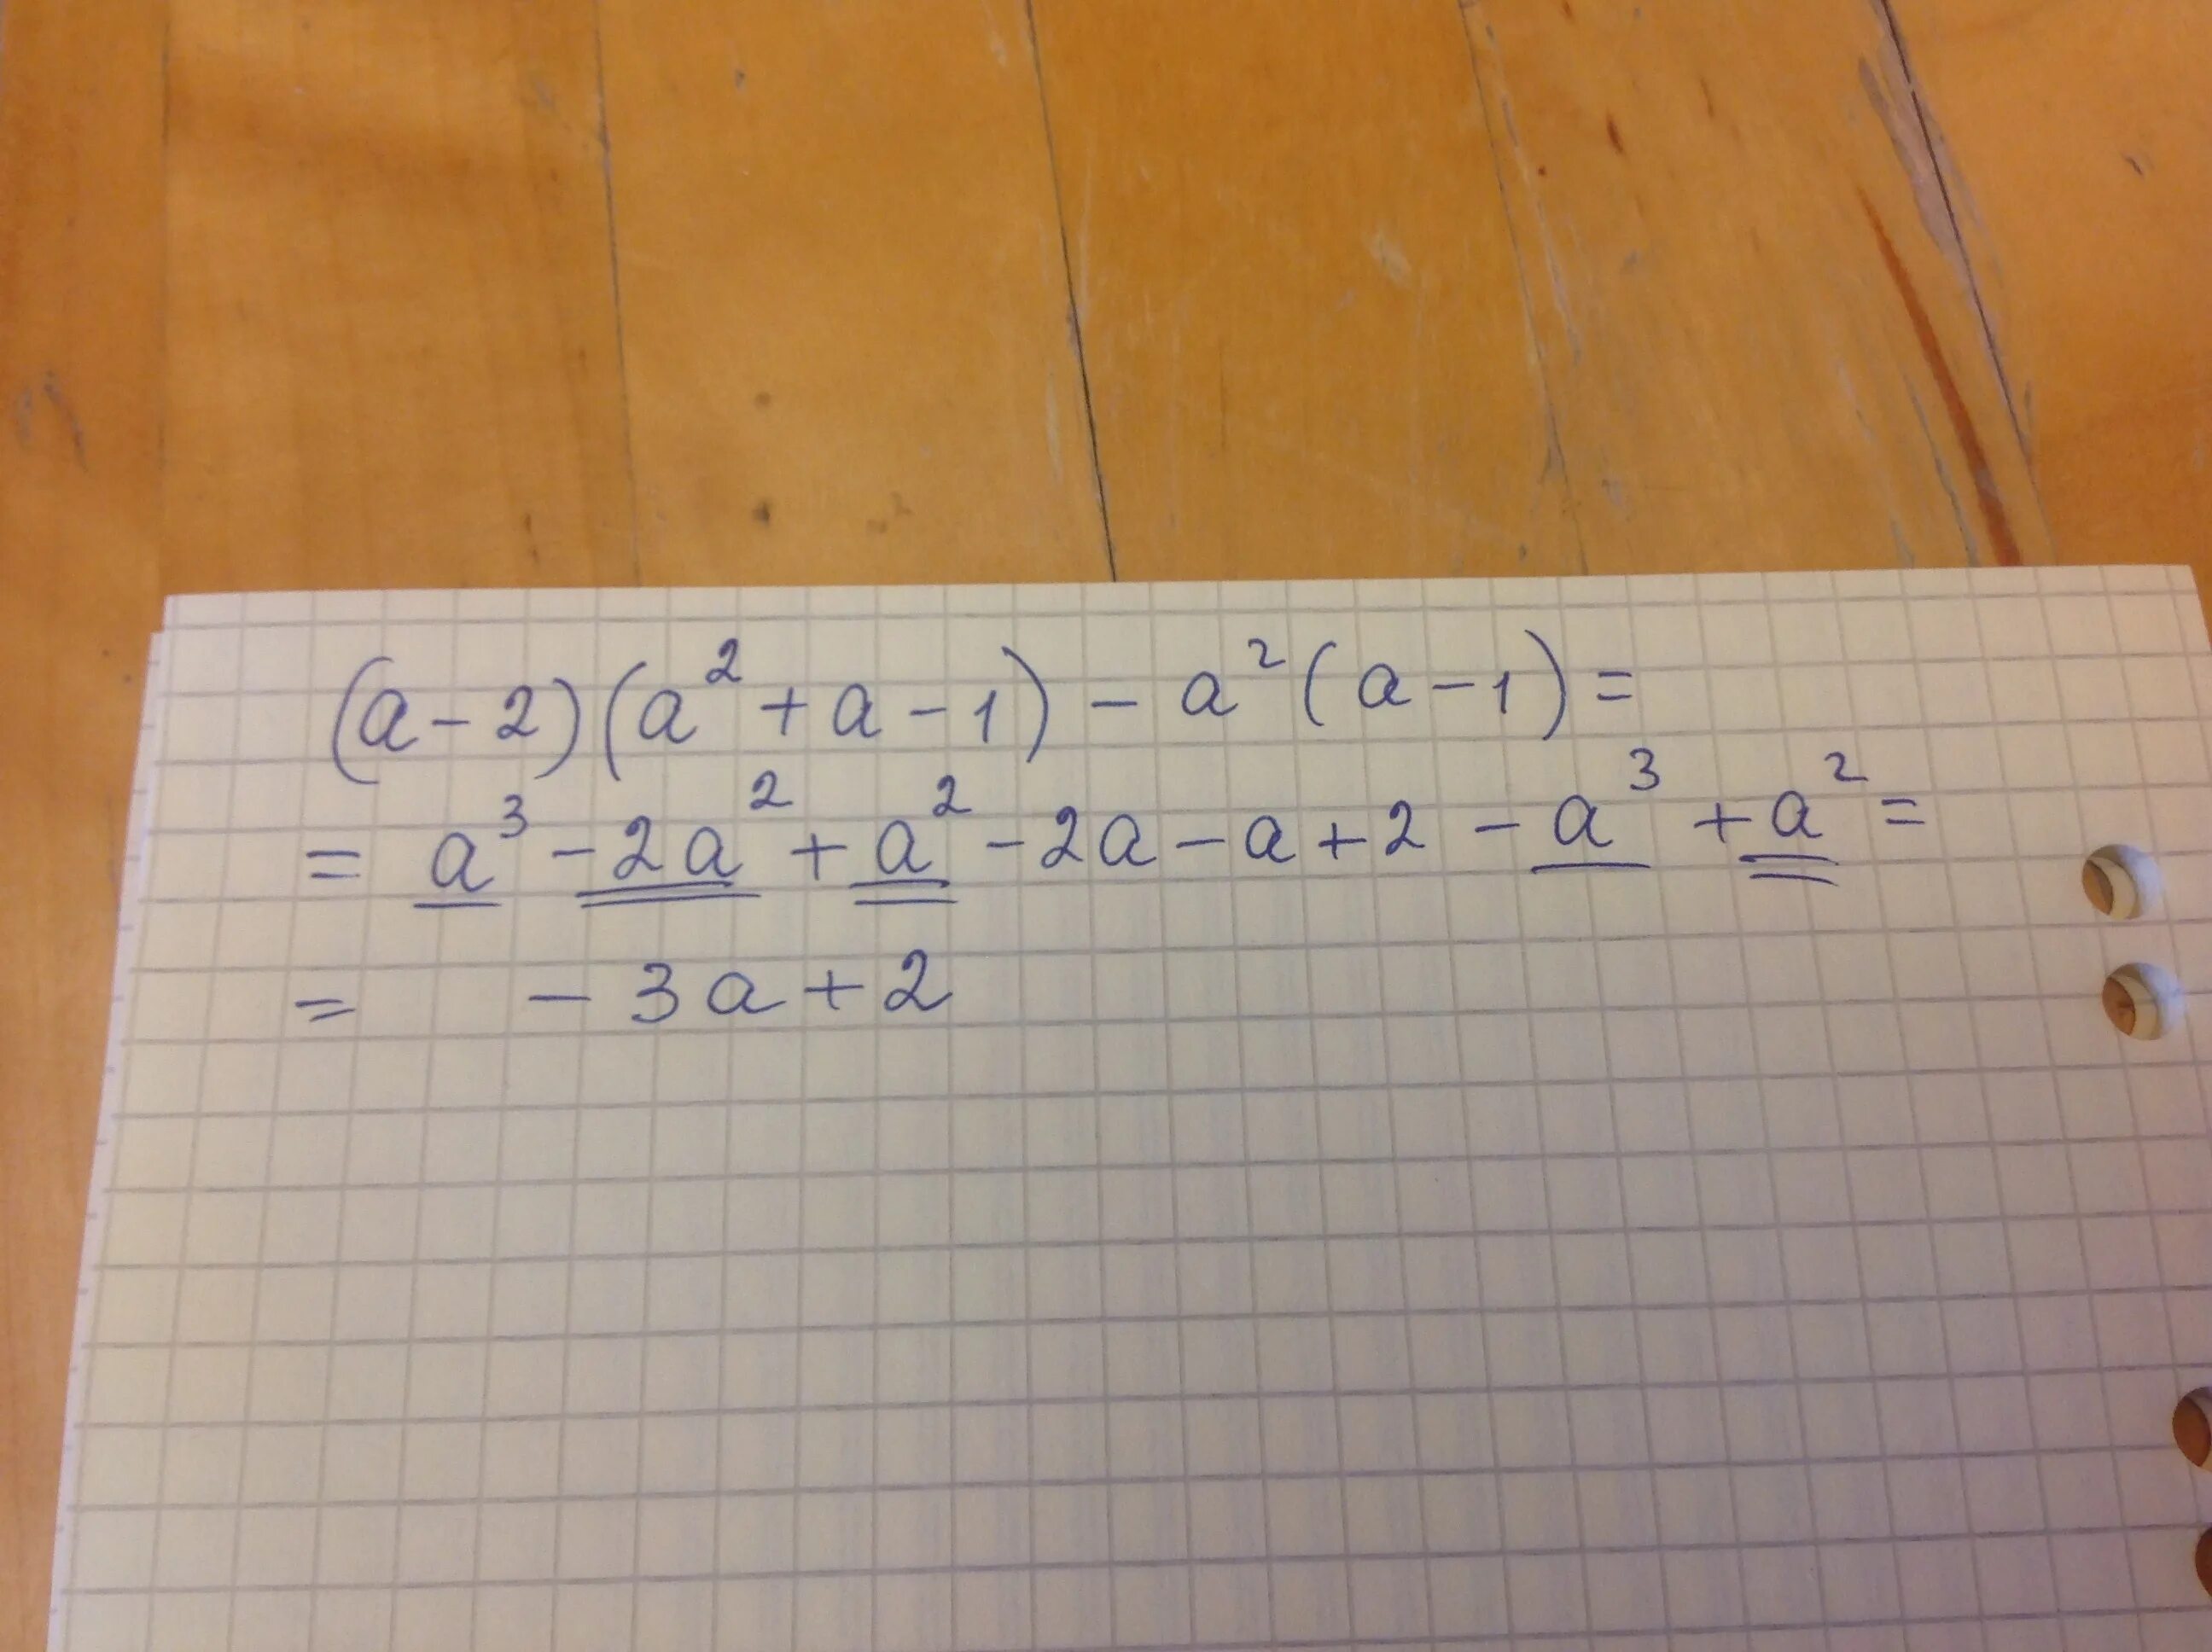 (a-2)(a²+a-1)-a²(a-1)=
=a³-2a²+a²-2a-a+2-a³+a²=
= -3a+2